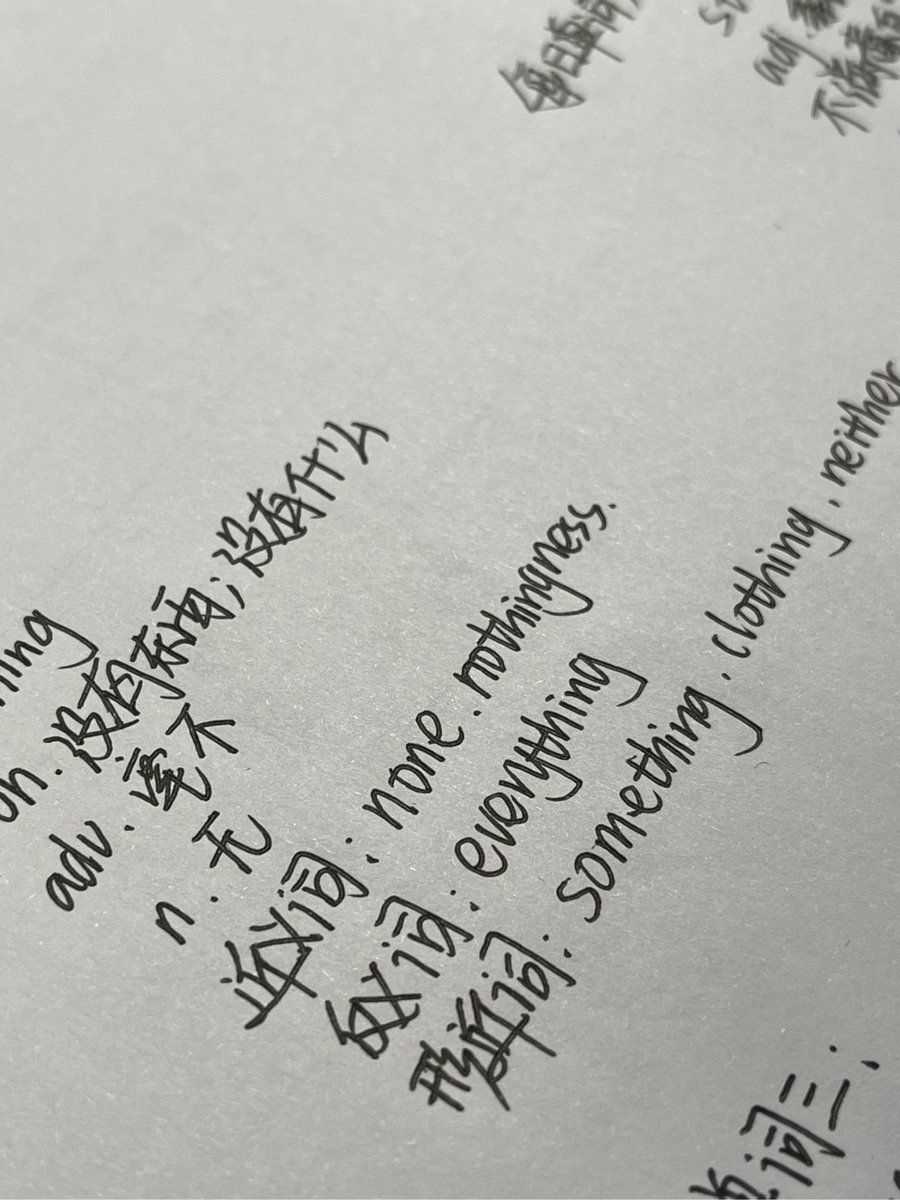 hing
on. 没有东西；没有什么
adv. 毫不
n. 无
近义词: none. nothingness.
反义词: everything
形近词: something. clothing. neither
词三:
每日单词
adj.